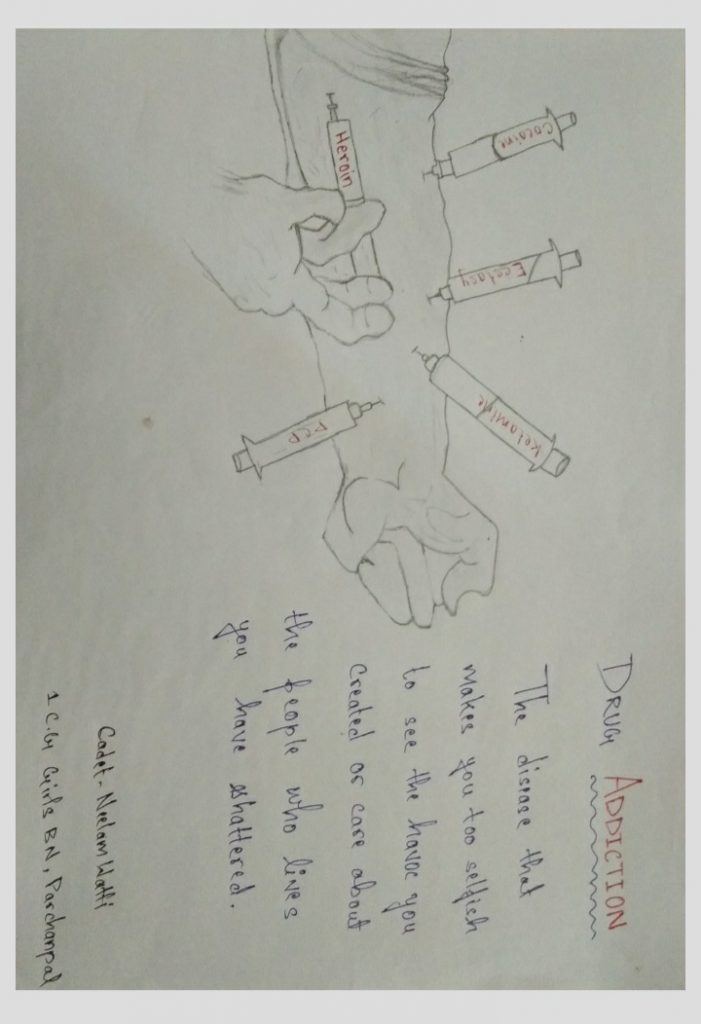 DRUG ADDICTION
The disease that
makes you too selfish
to see the havoc you
created or care about
the people who lives
you have shattered.
Cadet - Neelam Watti
1 C.G Girls BN, Parchanpal
Cocaine
Ecstasy
Ketamine
Heroin
PCP